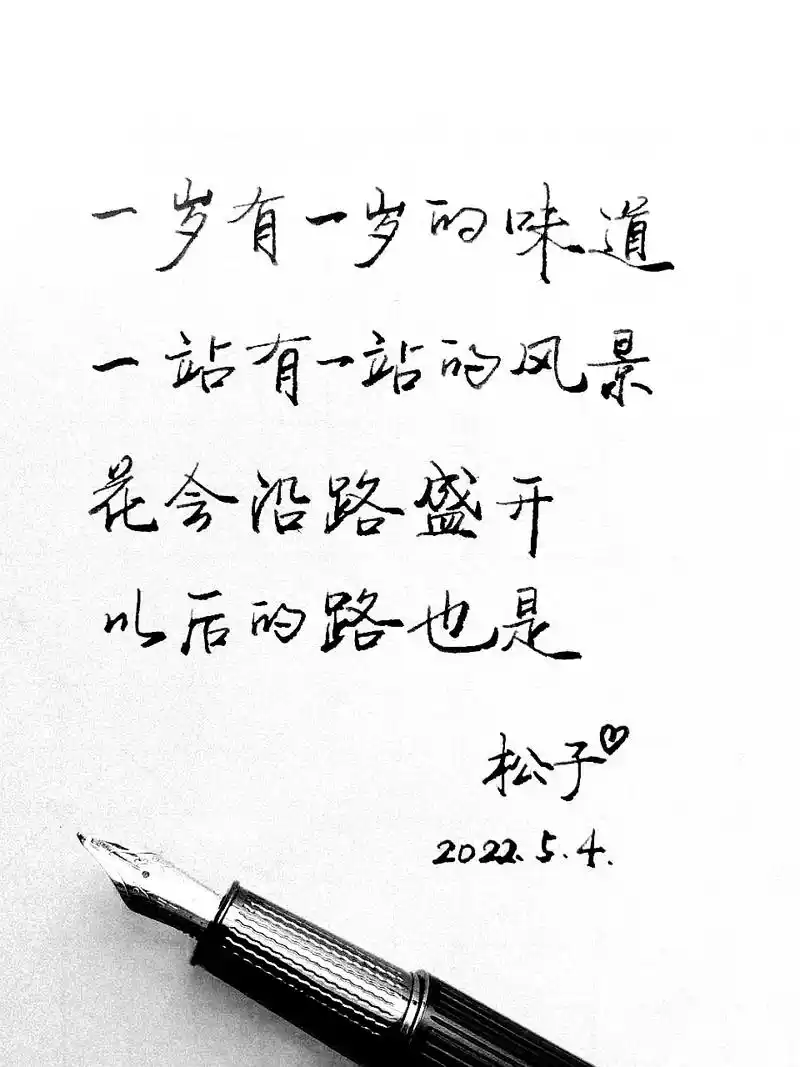 一岁有一岁的味道
一站有一站的风景
花会沿路盛开
以后的路也是
松子♡
2022.5.4.